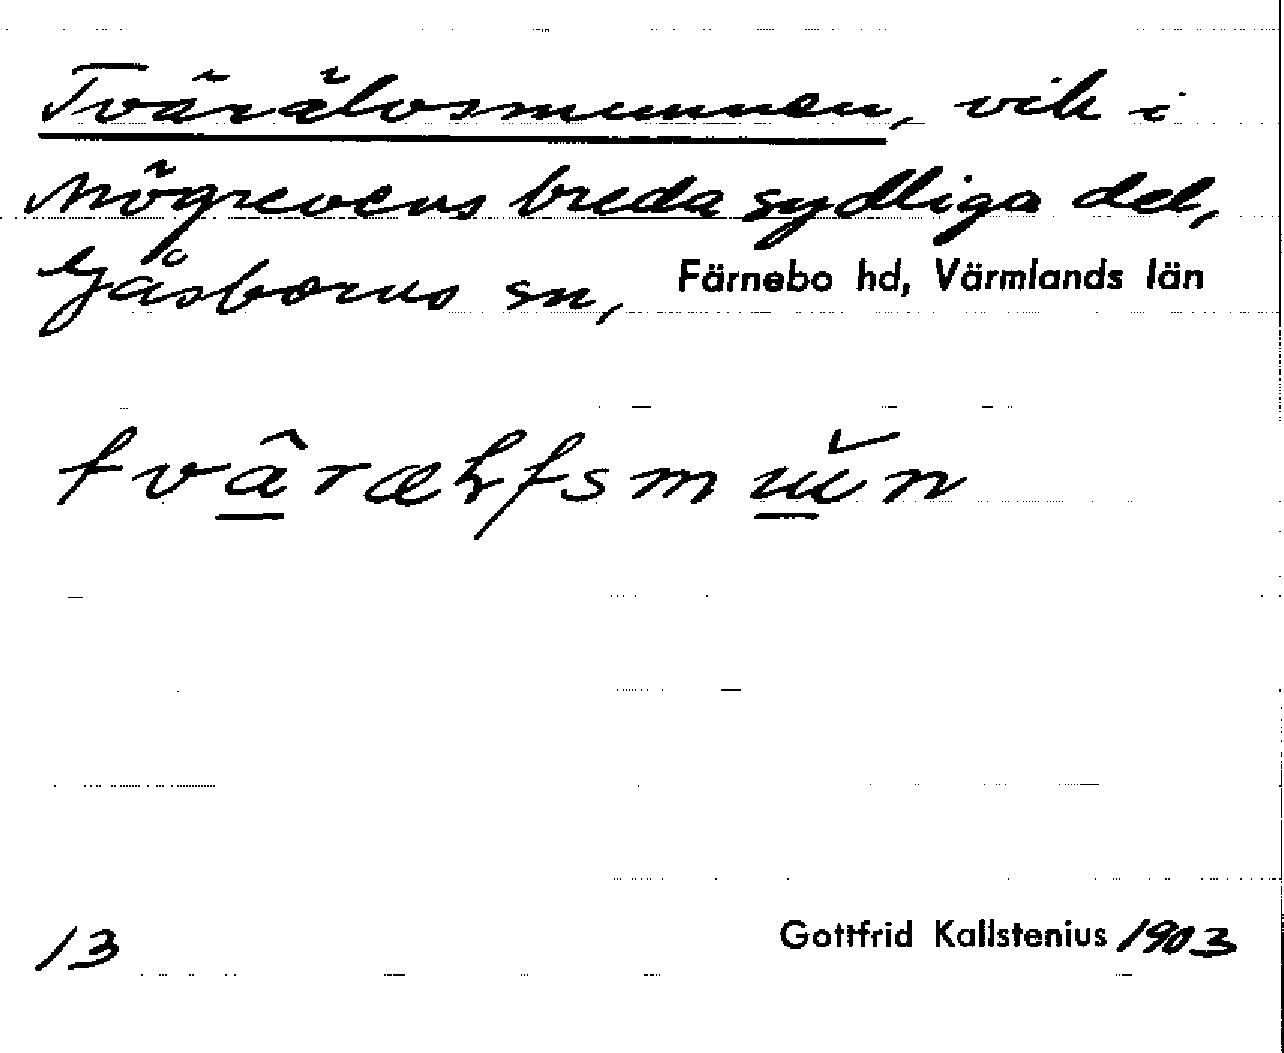 Tvärälvsmunnen, vik i
Mögrevens breda sydliga del,
Gåsborns sn, Färnebo hd, Värmlands län
13 Gottfrid Kallstenius 1903